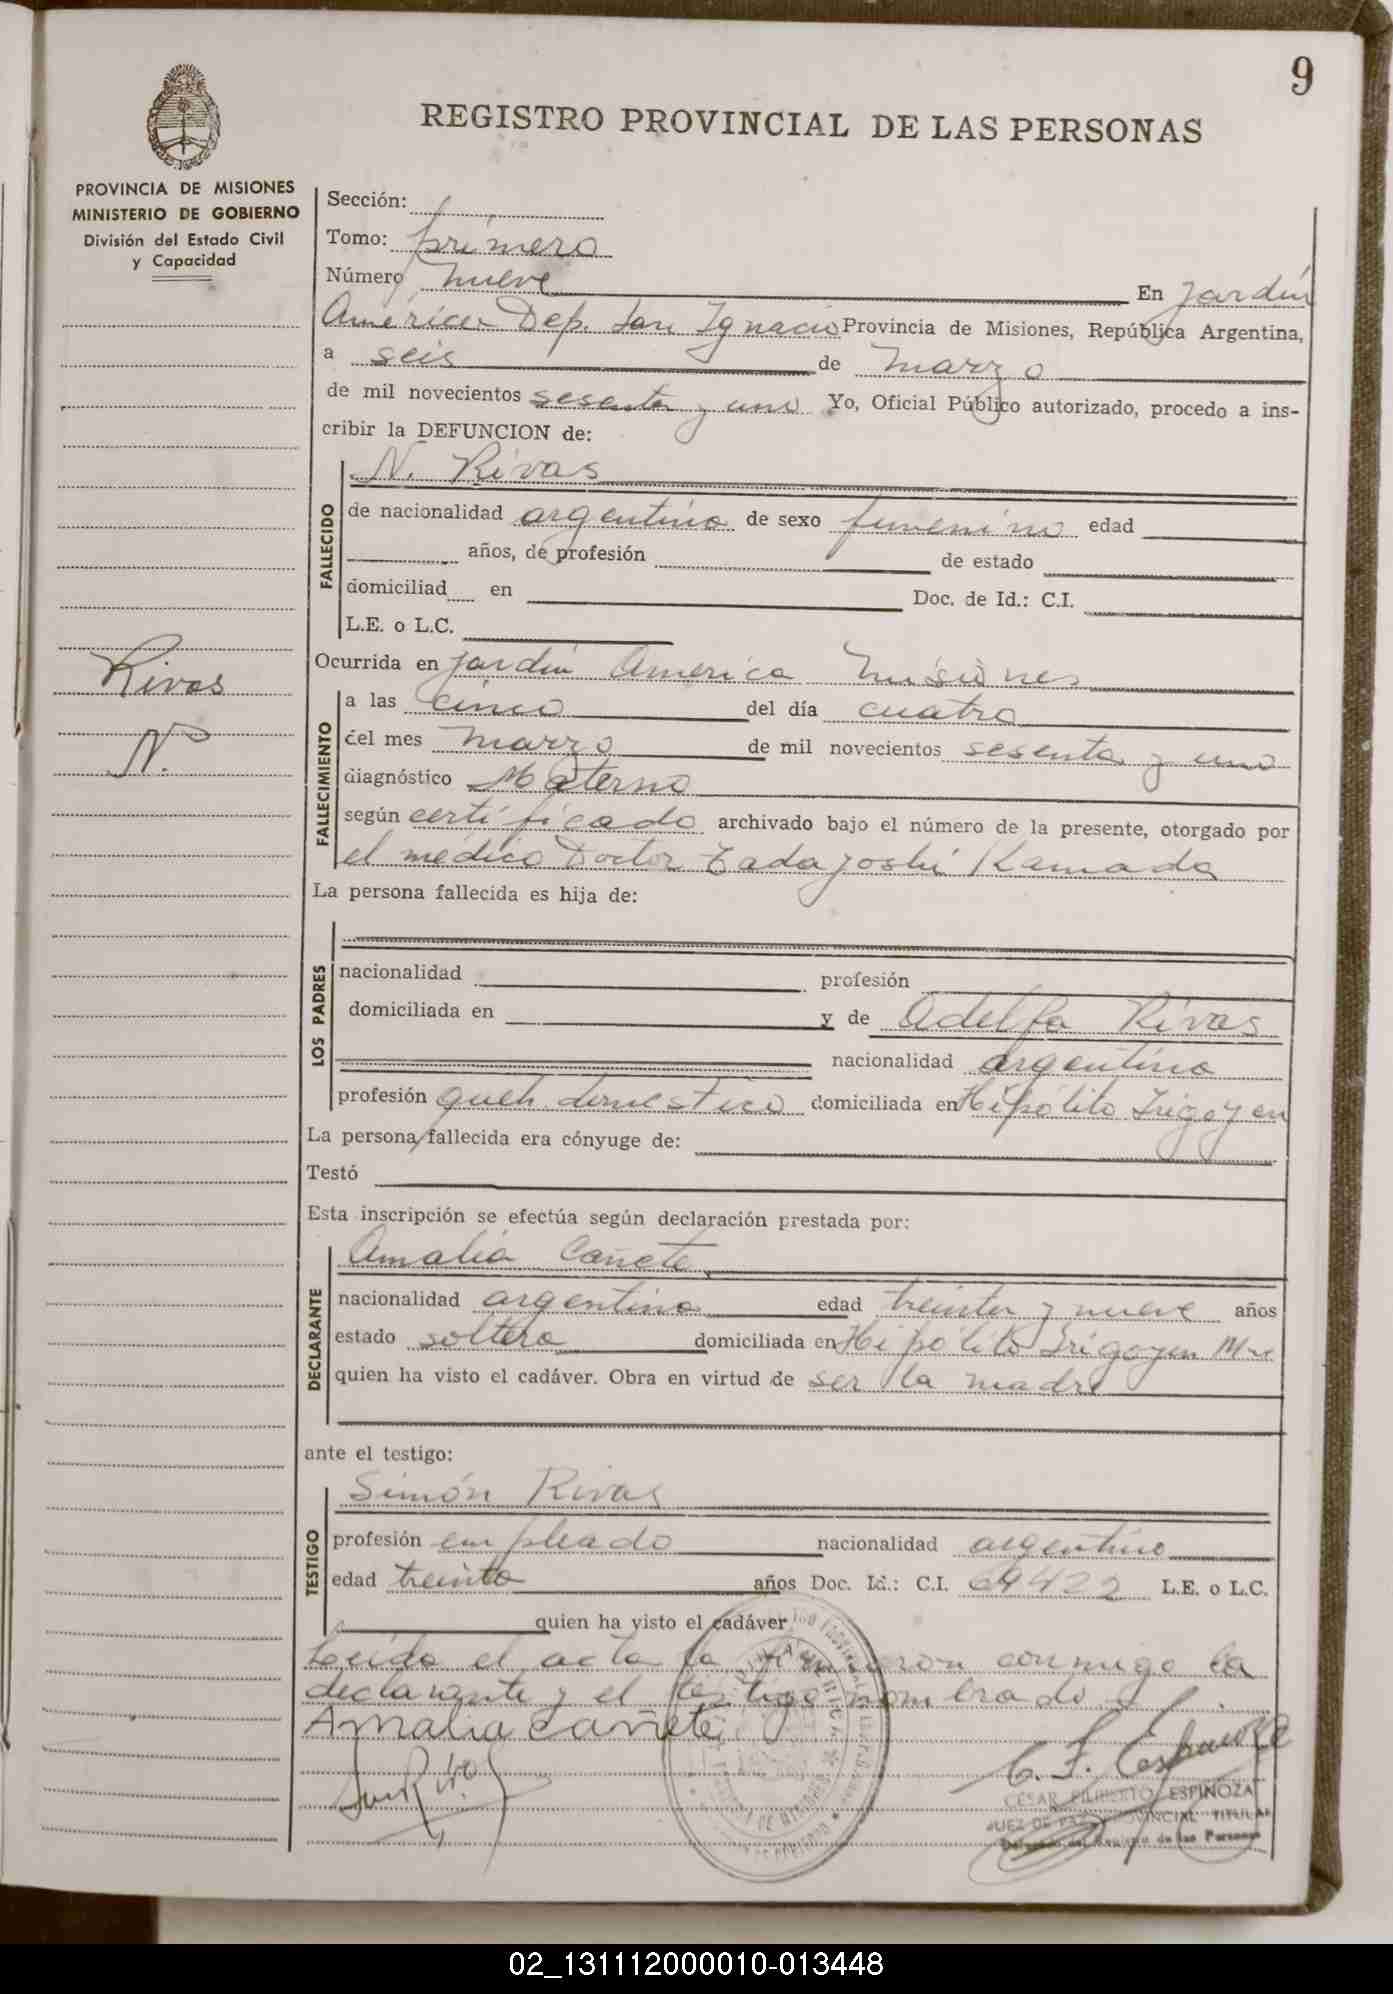 9
REGISTRO PROVINCIAL DE LAS PERSONAS
PROVINCIA DE MISIONES
MINISTERIO DE GOBIERNO
División del Estado Civil
y Capacidad
Rivas
N.
Sección:
Tomo: primero
Número nueve En Jardín
América Dep. San Ignacio Provincia de Misiones, República Argentina,
a seis de marzo
de mil novecientos sesenta y uno Yo, Oficial Público autorizado, procedo a ins-
cribir la DEFUNCION de:
N. Rivas
FALLECIDO
de nacionalidad argentina de sexo femenino edad
años, de profesión de estado
domiciliad en Doc. de Id.: C.I.
L.E. o L.C.
Ocurrida en Jardín America Misiones
FALLECIMIENTO
a las cinco del día cuatro
del mes marzo de mil novecientos sesenta y uno
diagnóstico Materno
según certificado archivado bajo el número de la presente, otorgado por
el médico Doctor Tadayoshi Kamada
La persona fallecida es hija de:
LOS PADRES
nacionalidad profesión
domiciliada en y de Adelfa Rivas
nacionalidad argentina
profesión queh. domestico domiciliada en Hipólito Irigoyen
La persona fallecida era cónyuge de:
Testó
Esta inscripción se efectúa según declaración prestada por:
Amalia Cañete
DECLARANTE
nacionalidad argentina edad treinta y nueve años
estado soltera domiciliada en Hipólito Irigoyen
quien ha visto el cadáver. Obra en virtud de ser la madre
ante el testigo:
Simón Rivas
TESTIGO
profesión empleado nacionalidad argentino
edad treinta años Doc. Id.: C.I. 64422 L.E. o L.C.
quien ha visto el cadáver
Leida el acta la firmaron conmigo la
declarante y el testigo nombrado.
Amalia Cañete
C. F. Espinoza
CESAR FILIBERTO ESPINOZA
JUEZ DE PAZ PROVINCIAL TITULAR
Delegado del Registro de las Personas
02_131112000010-013448